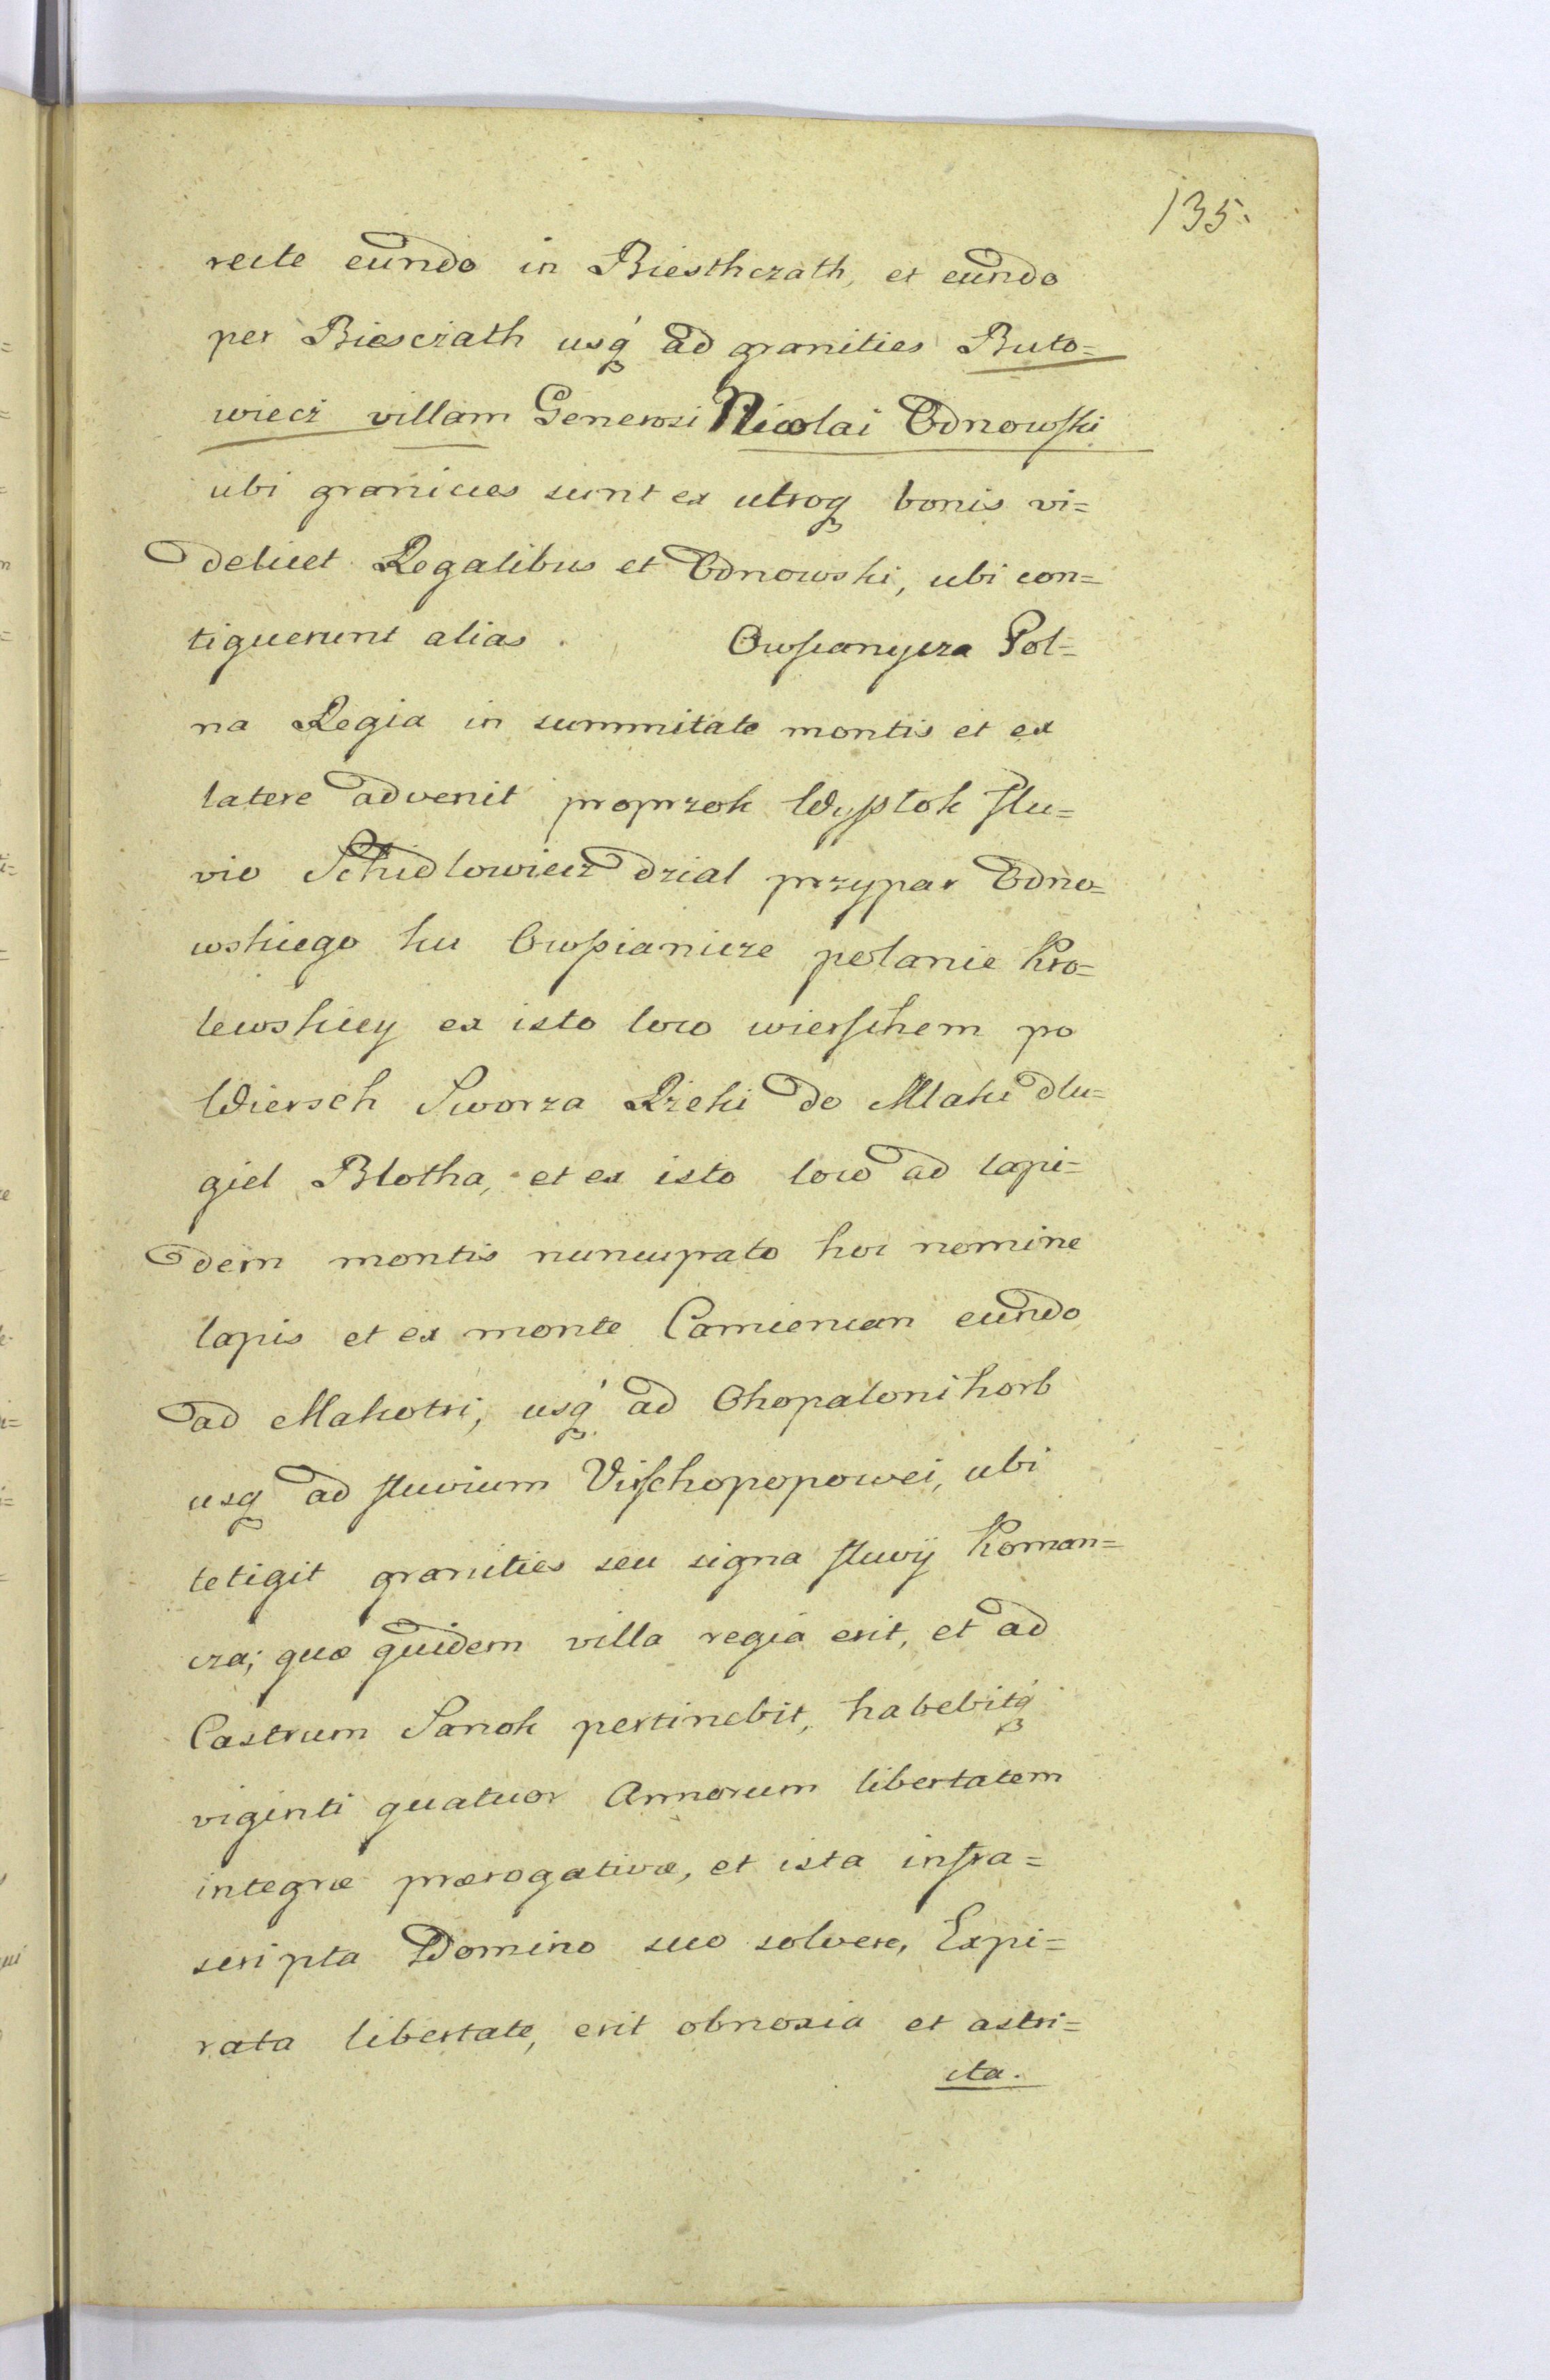 135.
recte eundo in Biesthczath, et eundo
per Biesczath usq́ ad granities Buto=
wiecz villam Generosi Nicolai Odnowski
ubi granicies sunt ex utroq bonis vi=
delicet Regalibus et Odnowski, ubi con=
tiguerunt alias . Owsianycza Pol=
na Regia in summitate montis et ex
latere advenit proprzok Wyptok flu=
vio Schidlowiecz dzial przypar Odno=
wskiego ku Owsianicze polanie Kro=
lewskiey ex isto loco wierschem po
Wiersch Sworza Rzeki do Mlaki dlu=
giel Blotha, et ex isto loco ad lapi=
dem montis nuncupato hoc nomine
lapis et ex monte Camiencan eundo
ad Makotri, usq́ ad Ohopaloni horb
usq ad fluvium Vischopopowei, ubi
tetigit granities seu signa fluvij Koman=
cza; quæ quidem villa regia erit, et ad
Castrum Sanok pertinebit, habebitq́
viginti quatuor Annorum libertatem
integræ prærogativæ, et ista infra=
scripta Domino suo solvere, Expi=
rata libertate, erit obnoxia et astri=
cta.